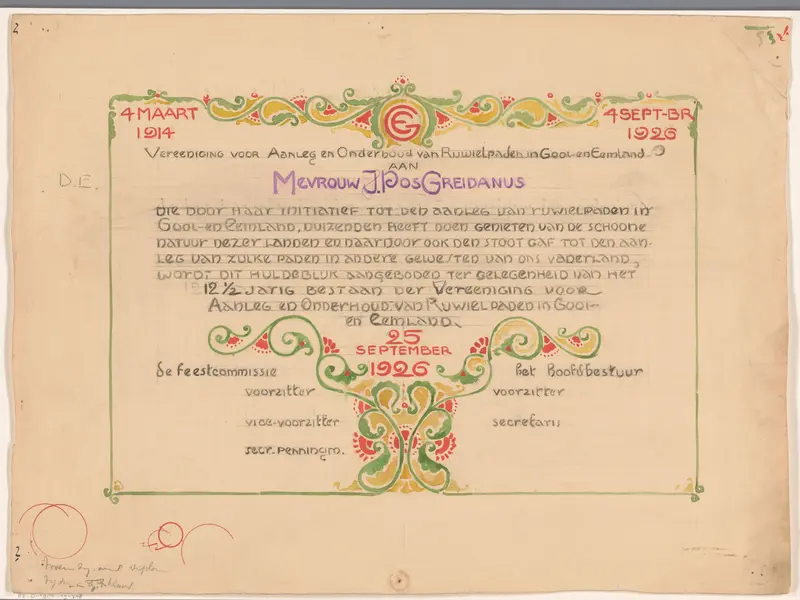 4 MAART
1914
GE
4 SEPT-BR
1926
VEREENIGING VOOR AANLEG EN ONDERHOUD VAN RIJWIELPADEN IN GOOI- EN EEMLAND
AAN
MEVROUW J. POS GREIDANUS
DIE DOOR HAAR INITIATIEF TOT DEN AANLEG VAN RIJWIELPADEN IN
GOOI- EN EEMLAND, DUIZENDEN HEEFT DOEN GENIETEN VAN DE SCHOONE
NATUUR DEZER LANDEN EN DAARDOOR OOK DEN STOOT GAF TOT DEN AAN-
LEG VAN ZULKE PADEN IN ANDERE GEWESTEN VAN ONS VADERLAND,
WORDT DIT HULDEBLIJK AANGEBODEN TER GELEGENHEID VAN HET
12 1/2 JARIG BESTAAN DER VEREENIGING VOOR
AANLEG EN ONDERHOUD VAN RIJWIELPADEN IN GOOI-
EN EEMLAND.
25
SEPTEMBER
1926
de feestcommissie
voorzitter
vice-voorzitter
secr.-penningm.
het hoofdbestuur
voorzitter
secretaris
D.E.
2
2